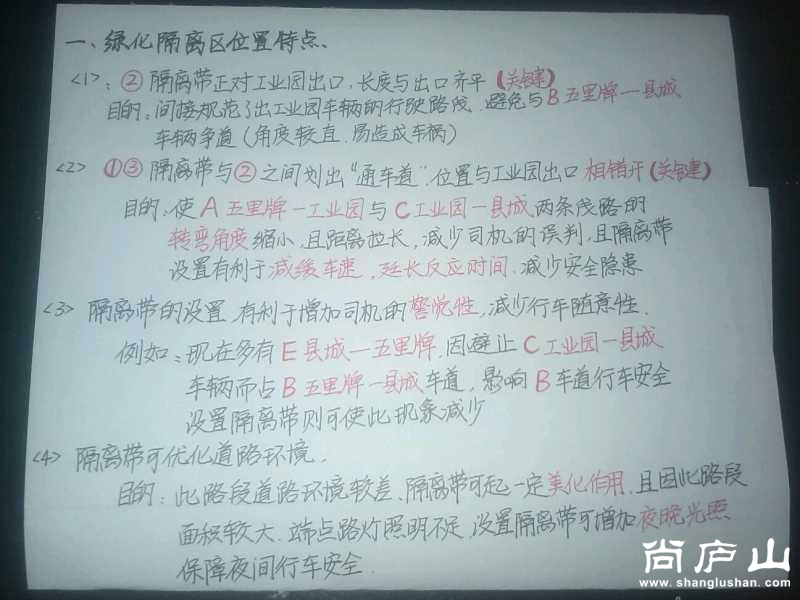 一、绿化隔离区位置特点、
<1>：② 隔离带正对工业园出口，长度与出口齐平（关键）
目的：间接规范了出工业园车辆的行驶路线，避免与B五里牌—县城
车辆争道（角度较直，易造成车祸）
<2> ①③ 隔离带与②之间划出“通车道”，位置与工业园出口相错开（关键）
目的：使A五里牌—工业园与C工业园—县城两条线路的
转弯角度缩小，且距离拉长，减少司机的误判，且隔离带
设置有利于减缓车速，延长反应时间，减少安全隐患
<3> 隔离带的设置，有利于增加司机的警觉性，减少行车随意性．
例如：现在多有E县城—五里牌，因避让C工业园—县城
车辆而占B五里牌—县城车道，影响B车道行车安全
设置隔离带则可使此现象减少
<4> 隔离带可优化道路环境．
目的：此路段道路环境较差、隔离带可起一定美化作用，且因此路段
面积较大、端点路灯照明不足，设置隔离带可增加夜晚光照
保障夜间行车安全．
尚庐山
www.shanglushan.com